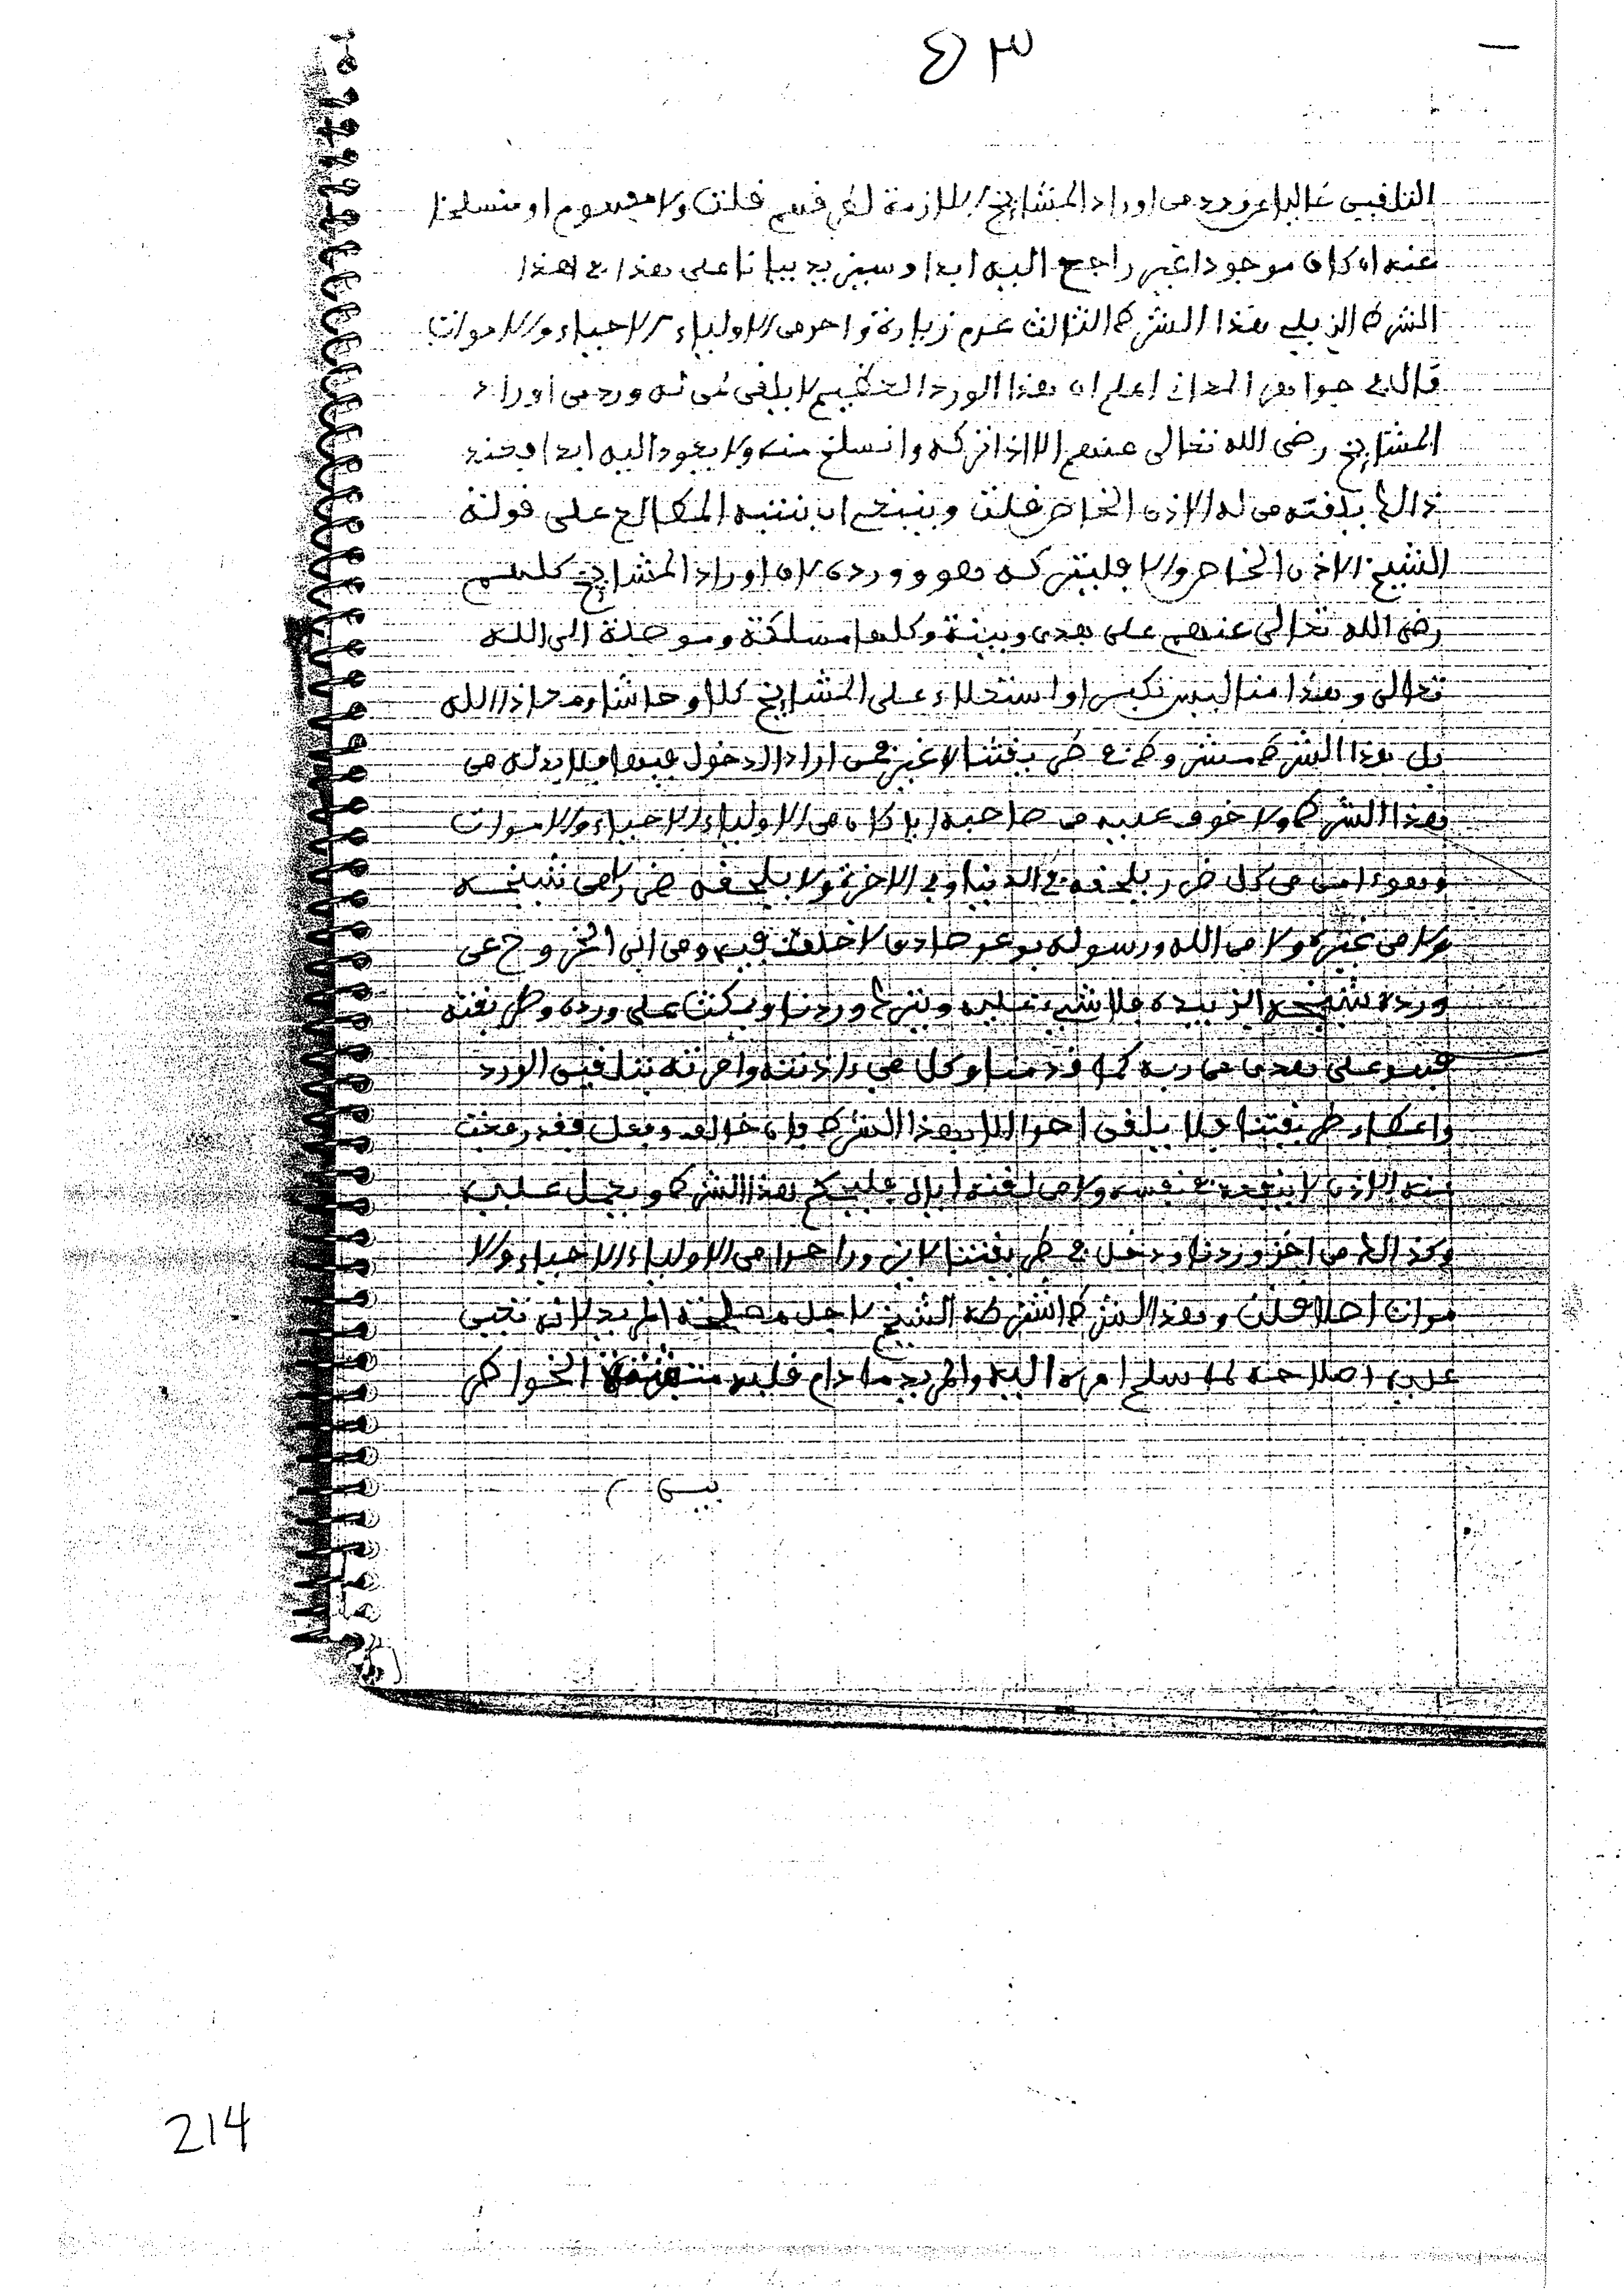 ٤٣
التلفيى غالبا عن ورد من اوراد المشايخ اللازمة لهم قسم قلت ولا مفهوم او منسلخا
عنه ان كان موجودا غير راجع اليه ابدا وسيزيد بيانا على هذا في هذا
الشرط الذي يلي هذا الشرط الثالث عدم زيارة واحد من الاولياء الاحياء والاموات
قال في جواهر المعاني اعلم ان هذا الورد العظيم لا يلقى لمن له ورد من اوراد
المشايخ رضى الله تعالى عنهم الا اذا تركه وانسلخ منه ولا يعود اليه ابدا فعند
ذالك يلقنه من له الاذن الخاص قلت وينبغي ان يتنبه المطالع على قولة
الشيخ الاذن الخاص والا فليتركه هو وورده لان اوراد المشايخ كلهم
رضى الله تعالى عنهم على هدى وبينة وكلها مسلكة وموصلة الى الله
تعالى وهذا منا ليس تكبرا او استعلاء على المشايخ كلا وحاشا ومعاذ الله
بل هذا الشرط مشروط في طريقتنا لا غير فمن اراد الدخول فيها فلا بد له من
هذا الشرط ولا خوف عليه من صاحبه ايا كان من الاولياء الاحياء والاموات
وهو ءامن من كل ضرر يلحقه في الدنيا وفي الاخرة ولا يلحقه ضرر لا من شيخه
ولا من غيره ولا من الله ورسوله بوعد صادق لا خلف فيه ومن ابى الخروج عن
ورده شيخه الذي بيده فلا شيء عليه ويترك وردنا ويمكث على ورده وطريقته
فهو على هدى من ربه كما قدمنا وكل من اذنته وامرته بتلقين الورد
واعطاء طريقتنا فلا يلقى احدا الا بهذا الشرط وان خالف وفعل فقد رفعت
منه الاذن لا ينفعه في نفسه ولا من لقنه اياه فليحكم هذا الشرط ويعمل عليه
وكذالك من اخذ وردنا ودخل في طريقتنا لا يزور احدا من الاولياء الاحياء ولا
موات اصلا قلت وهذا الشرط اشترطه الشيخ لاجل مصلحة المريد لانه تعين
عليه اصلاحه لما سلم امره اليه والمريد ما دام قلبه الخواطر
بين
214